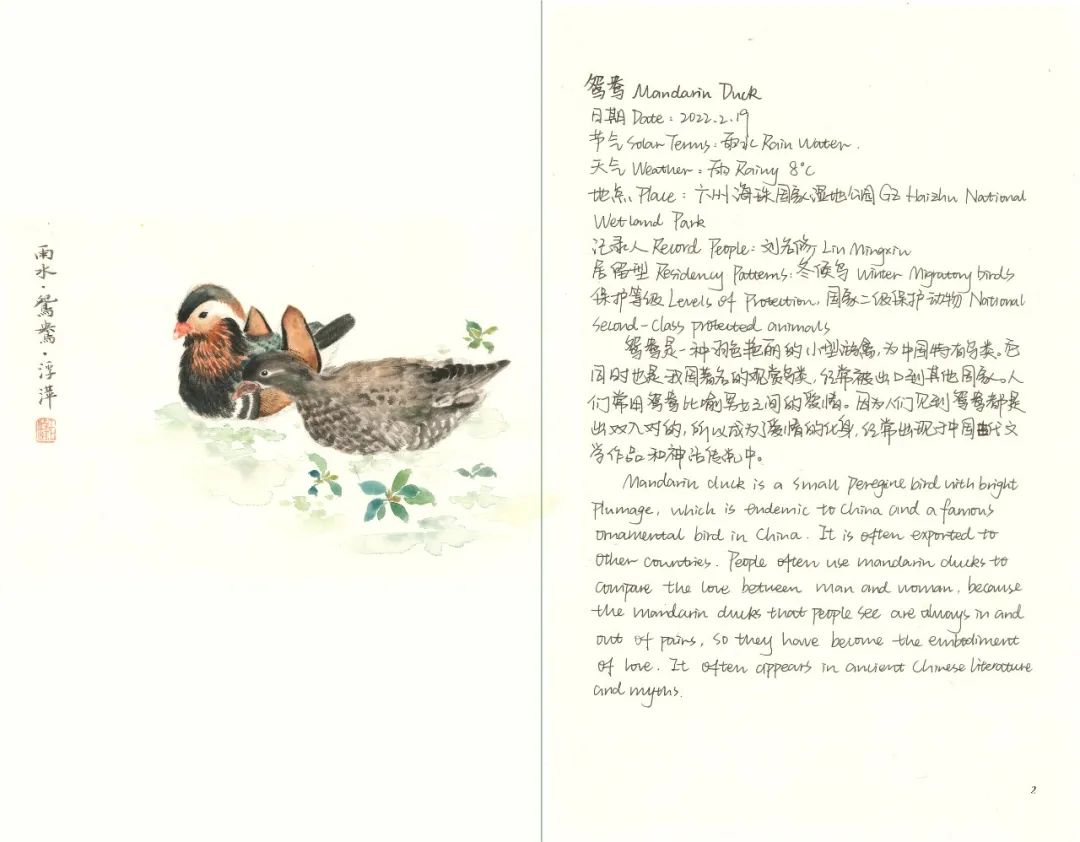 雨水·鸳鸯·浮萍
鸳鸯 Mandarin Duck
日期 Date: 2022.2.19
节气 Solar Terms: 雨水 Rain Water.
天气 Weather: 雨 Rainy 8°C
地点 Place: 广州海珠国家湿地公园 GZ Haizhu National
Wetland Park
记录人 Record People: 刘名修 Lin Mingxiu
居留型 Residency Patterns: 冬候鸟 Winter Migratory birds
保护等级 Levels of Protection: 国家二级保护动物 National
second-class protected animals
鸳鸯是一种羽色艳丽的小型游禽,为中国特有鸟类。它
同时也是我国著名的观赏鸟类,经常被出口到其他国家。人
们常用鸳鸯比喻男女之间的爱情。因为人们见到鸳鸯都是
出双入对的,所以成为了爱情的化身,经常出现于中国古代文
学作品和神话传说中。
Mandarin duck is a small Peregine bird with bright
Plumage, which is endemic to China and a famous
ornamental bird in China. It is often exported to
other countries. People often use mandarin ducks to
compare the love between man and woman, because
the mandarin ducks that people see are always in and
out of pairs, so they have become the embodiment
of love. It often appears in ancient Chinese literature
and myths.
2